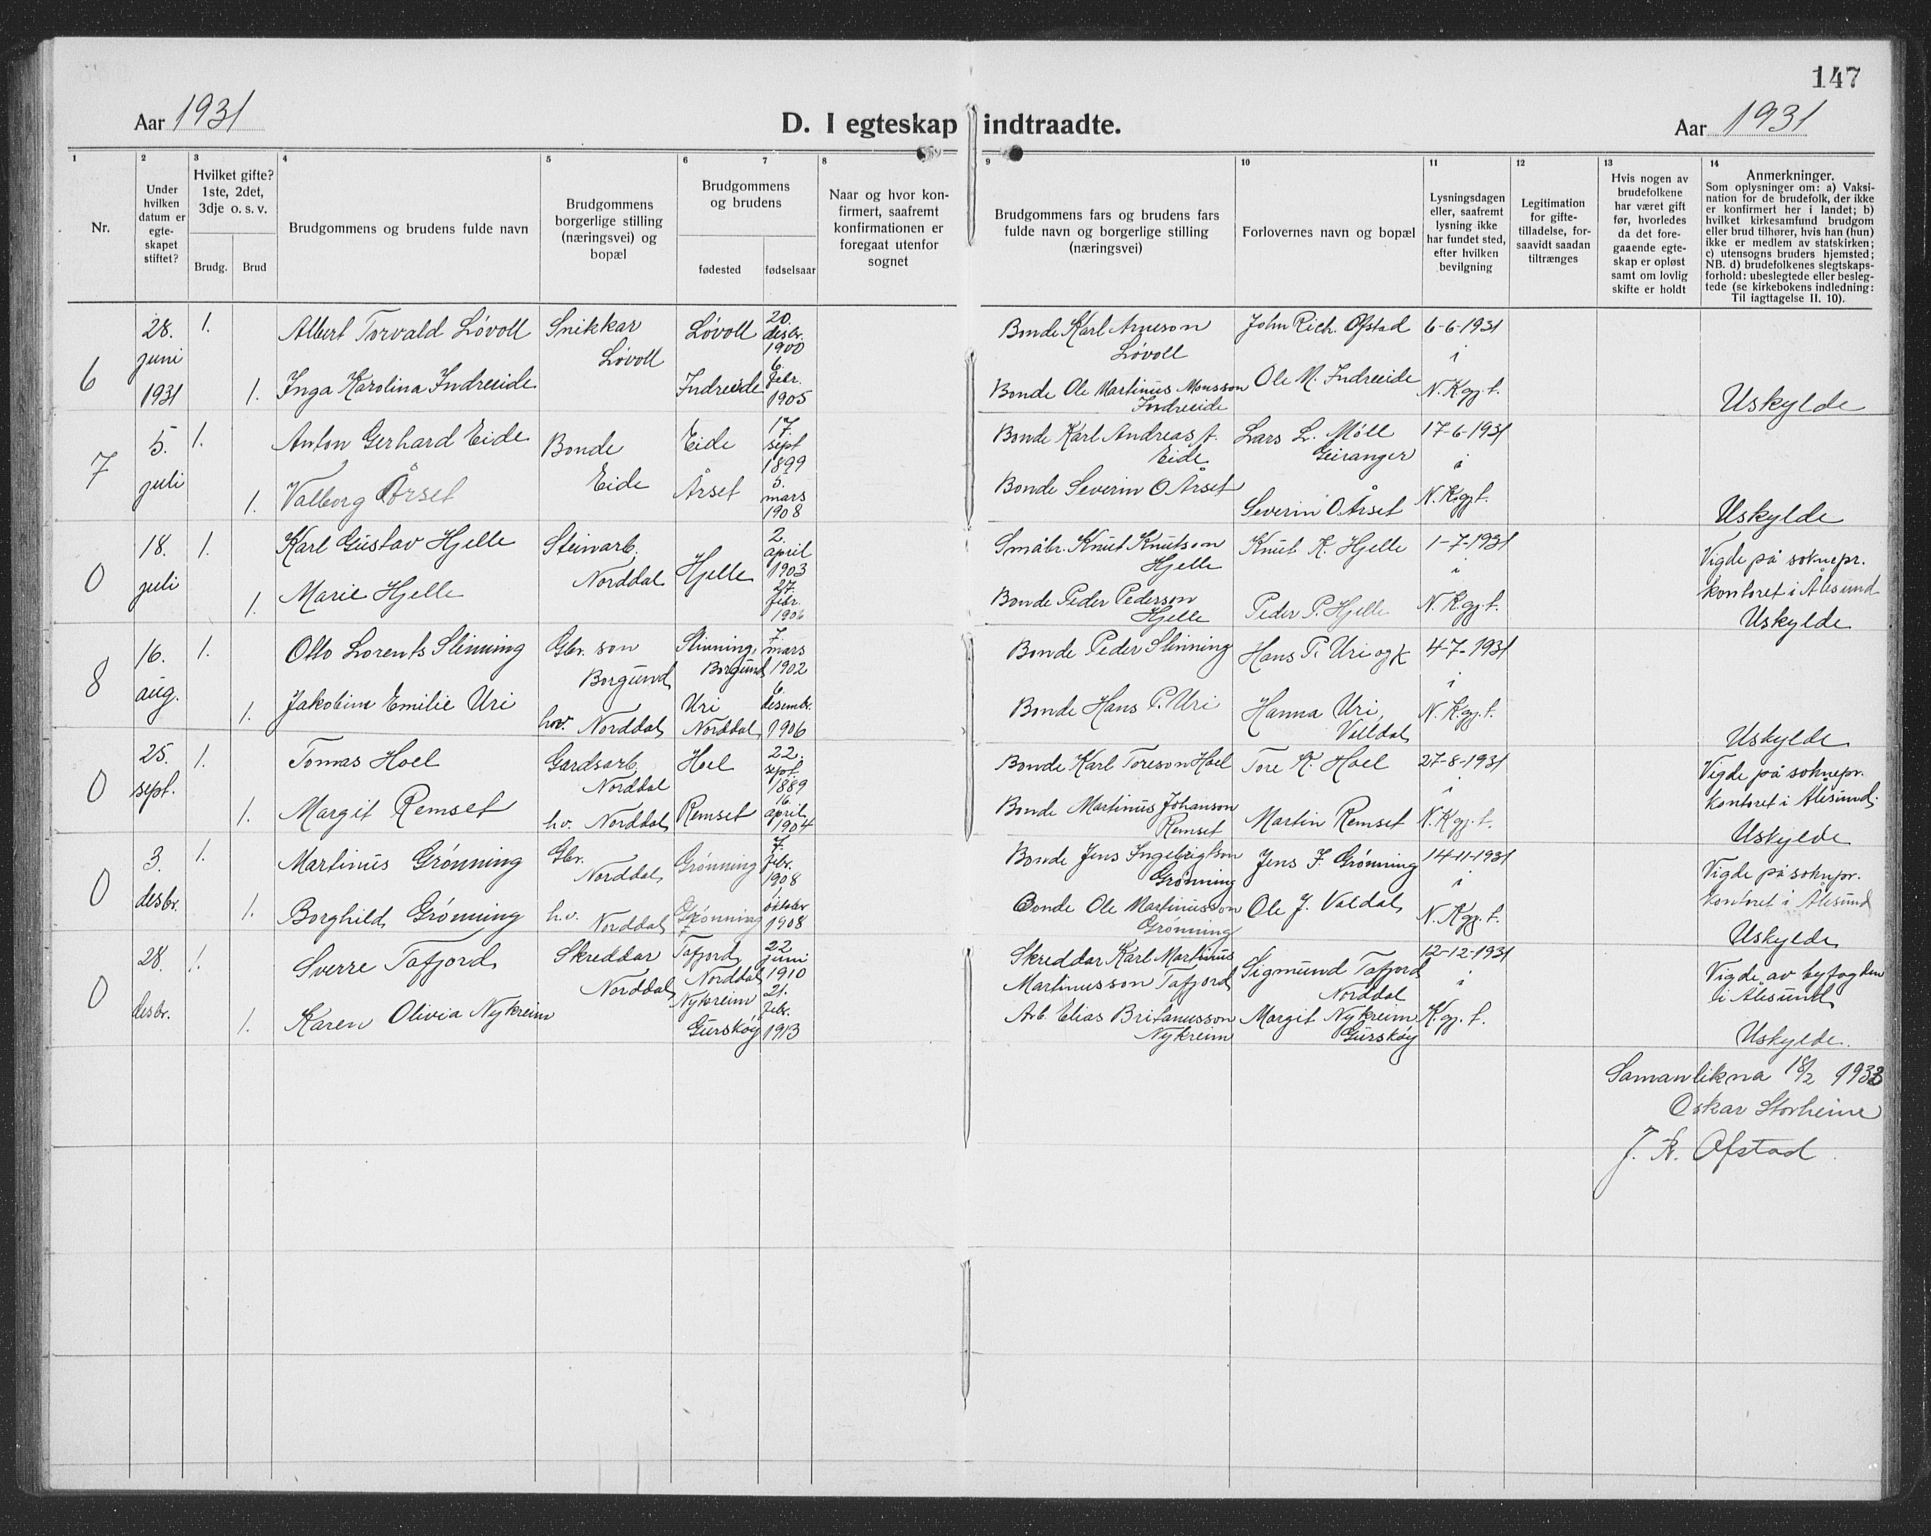 147
Aar 1931
D. I egteskap indtraadte.
Aar 1931
1 2 3 4 5 6 7 8 9 10 11 12 13 14
Nr.
Under hvilken datum er egte-skapet stiftet?
Hvilket gifte? 1ste, 2det, 3dje o. s. v.
Brudg. Brud
Brudgommens og brudens fulde navn
Brudgommens borgerlige stilling (næringsvei) og bopæl
Brudgommens og brudens
fødested fødselsaar
Naar og hvor kon-firmert, saafremt konfirmationen er foregaat utenfor sognet
Brudgommens fars og brudens fars fulde navn og borgerlige stilling (næringsvei)
Forlovernes navn og bopæl
Lysningsdagen eller, saafremt lysning ikke har fundet sted, efter hvilken bevilgning
Legitimation for gifte-tilladelse, for-saavidt saadan tiltrænges
Hvis nogen av brudefolkene har været gift før, hvorledes da det fore-gaaende egte-skap er opløst samt om lovlig skifte er holdt
Anmerkninger.
Som oplysninger om: a) Vaksi-nation for de brudefolk, der ikke er konfirmert her i landet; b) hvilket kirkesamfund brudgom eller brud tilhører, hvis han (hun) ikke er medlem av statskirken; c) utensogns bruders hjemsted; NB. d) brudefolkenes slegtskaps-forhold: ubeslegtede eller besleg-tede (se kirkebokens indledning: Til iagttagelse II. 10).
6 28. juni 1931 1. Albert Torvald Lövoll Snikkar Lövoll Lövoll 20. desbr. 1900 Bonde Karl Arneson Lövoll John Rich. Ofstad 6-6-1931 i N. Kgj. f.
1. Inga Karolina Indreeide Indreeide 6. febr. 1905 Bonde Ole Martinus Monsson Indreeide Ole M. Indreeide Uskylde
7 5. juli 1. Anton Gerhard Eide Bonde Eide Eide 17. sept 1899 Bonde Karl Andreas A. Eide Lars L. Möll Geiranger 17-6-1931 i N. Kgj. f.
1. Valborg Årset Årset 5. mars 1908 Bonde Severin O Årset Severin O Årset Uskylde
0 18. juli 1. Karl Gustav Hjelle Steinarb. Norddal Hjelle 2. april 1903 Småbr. Knut Knutson Hjelle Knut K. Hjelle 1-7-1931 i N. Kgj. f. Vigde på soknepr. kontoret i Ålesund
1. Marie Hjelle 27. febr. 1906 Bonde Peder Pederson Hjelle Peder P. Hjelle Uskylde
8 16. aug. 1. Otto Lorents Slinning Gbr. son Borgund Slinning, Borgund 7. mars 1902 Bonde Peder Slinning Hans P. Uri og k 4-7-1931 i N. Kgj. f.
1. Jakobine Emilie Uri hv. Norddal Uri Norddal 6. desembr. 1906 Bonde Hans P. Uri Hanna Uri, Valldal Uskylde
0 25. sept. 1. Tomas Hoel Gardsarb. Norddal Hoel 22. sept. 1889 Bonde Karl Toreson Hoel Tore K. Hoel 27-8-1931 i N. Kgj. f. Vigde på soknepr. kontoret i Ålesund.
1. Margit Remset hv. Norddal Remset 16. april 1904 Bonde Martinus Johanson Remset Martin Remset Uskylde
0 3. desbr. 1. Martinus Grönning Gbr. Norddal Grönning 7. febr. 1908 Bonde Jens Ingebrigtson Grönning Jens J. Grönning 14-11-1931 i N. Kgj. f. Vigde på soknpr. kontoret i Ålesund
1. Borghild Grönning hv. Norddal Grönning oktober 1908 Bonde Ole Martinusson Grönning Ole J. Valdal Uskylde
0 28. desbr. 1. Sverre Tafjord Skreddar Norddal Tafjord Norddal 22 juni 1910 Skreddar Karl Martinus Martinusson Tafjord Sigmund Tafjord Norddal 12-12-1931 i Kgj. f. Vigde av byfogden i Ålesund
1. Karen Olivia Nykreim Nykreim Gurskøy 21. febr. 1913 Arb. Elias Britanusson Nykreim Margit Nykreim Gurskøy Uskylde.
Samanlikna 18/2 1933
Oskar Storheim
J. R. Ofstad.